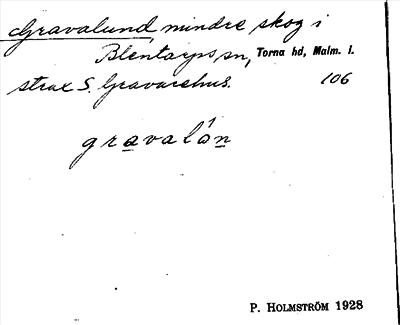 Gravalund, mindre skog i
Blentarps sn, Torna hd, Malm. l.
strax S. Gravarehus. 106
gravalón
P. HOLMSTRÖM 1928